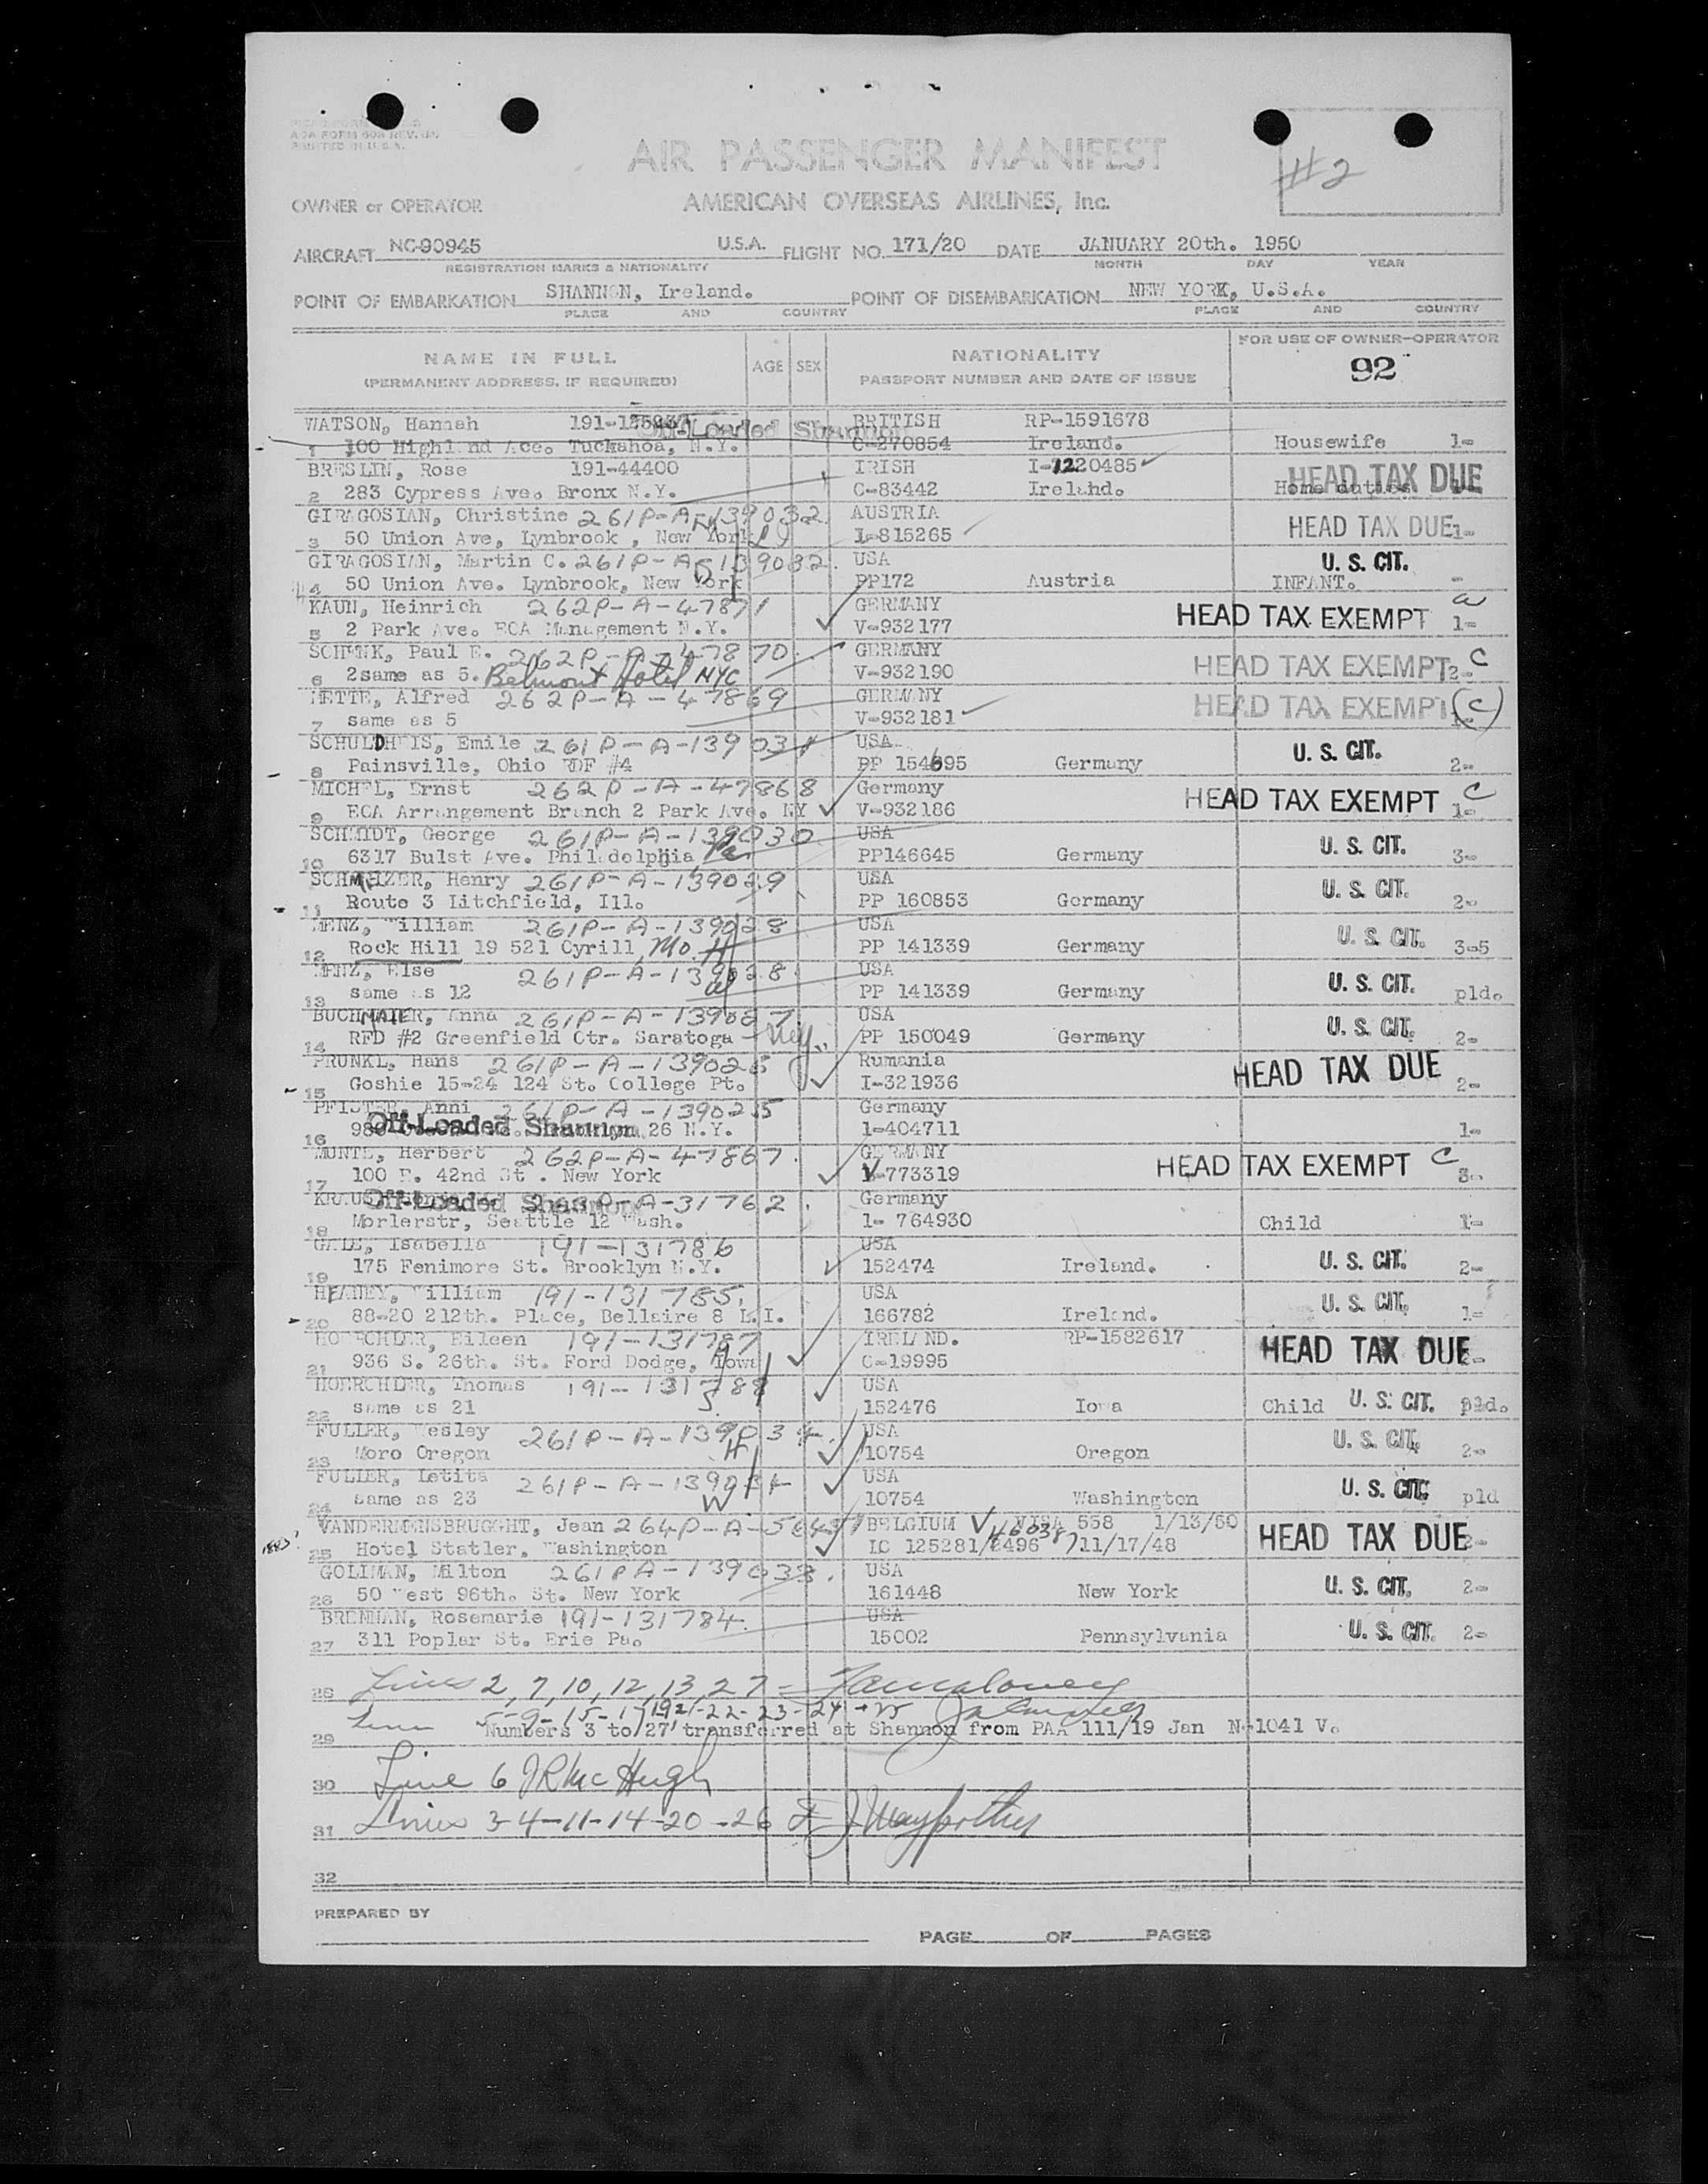 AOA FORM 608 REV.
PRINTED IN U.S.A.
AIR PASSENGER MANIFEST
#2
OWNER or OPERATOR
AMERICAN OVERSEAS AIRLINES, Inc.
AIRCRAFT NC-90945 U.S.A. FLIGHT NO. 171/20 DATE JANUARY 20th. 1950
REGISTRATION MARKS & NATIONALITY MONTH DAY YEAR
POINT OF EMBARKATION SHANNON, Ireland. POINT OF DISEMBARKATION NEW YORK, U.S.A.
PLACE AND COUNTRY PLACE AND COUNTRY
NAME IN FULL AGE SEX NATIONALITY FOR USE OF OWNER-OPERATOR
(PERMANENT ADDRESS, IF REQUIRED) PASSPORT NUMBER AND DATE OF ISSUE 92
WATSON, Hannah Off-Loaded Shannon BRITISH RP-1591678
1 100 Highl nd Ace. Tuckahoa, N.Y. C-270854 Ireland. Housewife 1-
BRESLIN, Rose 191-44400 IRISH I-1220485
2 283 Cypress Ave. Bronx N.Y. C-83442 Ireland. Home duties HEAD TAX DUE
GIRAGOSIAN, Christine 261P-A-139032 AUSTRIA
3 50 Union Ave, Lynbrook , New York I-815265 HEAD TAX DUE 1-
GIRAGOSIAN, Martin C. 261P-A-139032 USA U. S. CIT.
4 50 Union Ave. Lynbrook, New York PP172 Austria INFANT. -
KAUN, Heinrich 262P-A-47871 GERMANY
5 2 Park Ave. ECA Management N.Y. V-932177 HEAD TAX EXEMPT 1-
SCHENK, Paul E. 262P-A-47870 GERMANY
6 2same as 5. Belmont Hotel NYC V-932190 HEAD TAX EXEMPT 2- C
METTE, Alfred 262P-A-47869 GERMANY
7 same as 5 V-932181 HEAD TAX EXEMPT C
SCHULDHEIS, Emile 261P-A-139031 USA
8 Painsville, Ohio RDF #4 PP 154695 Germany U. S. CIT. 2-
MICHEL, Ernst 262P-A-47868 Germany
9 ECA Arrangement Branch 2 Park Ave. NY V-932186 HEAD TAX EXEMPT C 1-
SCHMIDT, George 261P-A-139030 USA
10 6317 Bulst Ave. Philadelphia Pa. PP146645 Germany U. S. CIT. 3-
SCHMELZER, Henry 261P-A-139029 USA
11 Route 3 Litchfield, Ill. PP 160853 Germany U. S. CIT. 2-
MENZ, William 261P-A-139028 USA
12 Rock Hill 19 521 Cyrill Mo. H PP 141339 Germany U. S. CIT. 3-5
MENZ, Else 261P-A-139028 USA
13 same as 12 W PP 141339 Germany U. S. CIT. pld.
BUCHMAIER, Anna 261P-A-139027 USA
14 RFD #2 Greenfield Ctr. Saratoga PP 150049 Germany U. S. CIT. 2-
PRUNKL, Hans 261P-A-139026 Rumania
15 Goshie 15-24 124 St. College Pt. I-321936 HEAD TAX DUE 2-
PFISTER, Anni 261P-A-139025 Germany
16 Off-Loaded Shannon 26 N.Y. 1-404711 1-
MUNTE, Herbert 262P-A-47867 GERMANY
17 100 E. 42nd St . New York V-773319 HEAD TAX EXEMPT C 3-
Off-Loaded Shannon 263P-A-31762 Germany
18 Morlerstr, Seattle 12 Wash. 1- 764930 Child 1-
GALE, Isabella 191-131786 USA
19 175 Fenimore St. Brooklyn N.Y. 152474 Ireland. U. S. CIT. 2-
HEANEY, William 191-131785 USA
20 88-20 212th. Place, Bellaire 8 L.I. 166782 Ireland. U. S. CIT. 1-
HOERCHLER, Eileen 191-131787 IRELAND. RP-1582617
21 936 S. 26th. St. Ford Dodge, Iowa C-19995 HEAD TAX DUE
HOERCHLER, Thomas 191-131788 USA
22 same as 21 152476 Iowa Child U. S. CIT. pld.
FULLER, Wesley 261P-A-139034 USA
23 Moro Oregon H 10754 Oregon U. S. CIT. 2-
FULLER, Letita 261P-A-139034 USA
24 same as 23 W 10754 Washington U. S. CIT. pld
VANDERMENSBRUGGHT, Jean 264P-A- BELGIUM VISA 558 1/13/50
25 Hotel Statler, Washington LC 125281/2496 11/17/48 HEAD TAX DUE
GOLIMAN, Milton 261PA-139033 USA
26 50 West 96th. St. New York 161448 New York U. S. CIT. 2-
BRENNAN, Rosemarie 191-131784 USA
27 311 Poplar St. Erie Pa. 15002 Pennsylvania U. S. CIT. 2-
28 Lines 2, 7, 10, 12, 13, 27 =
5-9-15-17 19 21-22-23-24 + 25
29 Numbers 3 to 27 transferred at Shannon from PAA 111/19 Jan N-1041 V.
30 Line 6 JR McHugh
31 Lines 3-4-11-14-20-26
32
PREPARED BY
PAGE OF PAGES